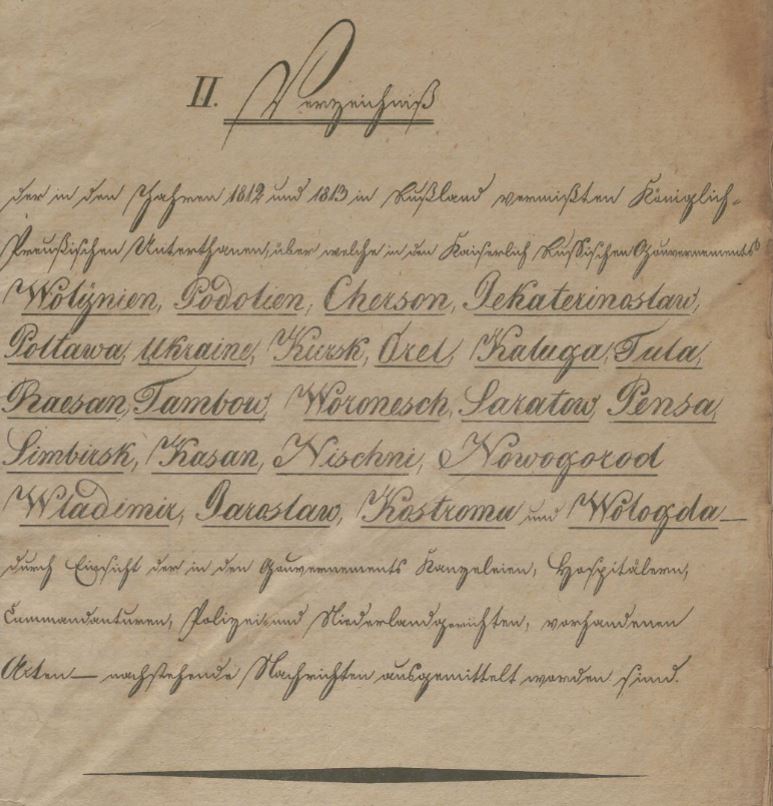 II. Verzeichniß
der in den Jahren 1812 und 1813 in Rußland vermißten Königlich-
Preußischen Unterthanen, über welche in den Kaiserlich Russischen Gouvernements
Wolÿnien, Podolien, Cherson, Jekaterinoslaw,
Poltawa, Ukraine, Kursk, Orel, Kaluga, Tula,
Raesan, Tambow, Woronesch, Saratow, Pensa,
Simbirsk, Kasan, Nischni, Nowogorod
Wladimir, Jaroslaw, Kostroma und Wologda—
durch Einsicht der in den Gouvernements Kanzeleien, Hospitälern,
Commandanturen, Polizei und Niederlandgerichten, vorhandenen
Akten— nachstehende Nachrichten ausgemittelt worden sind.